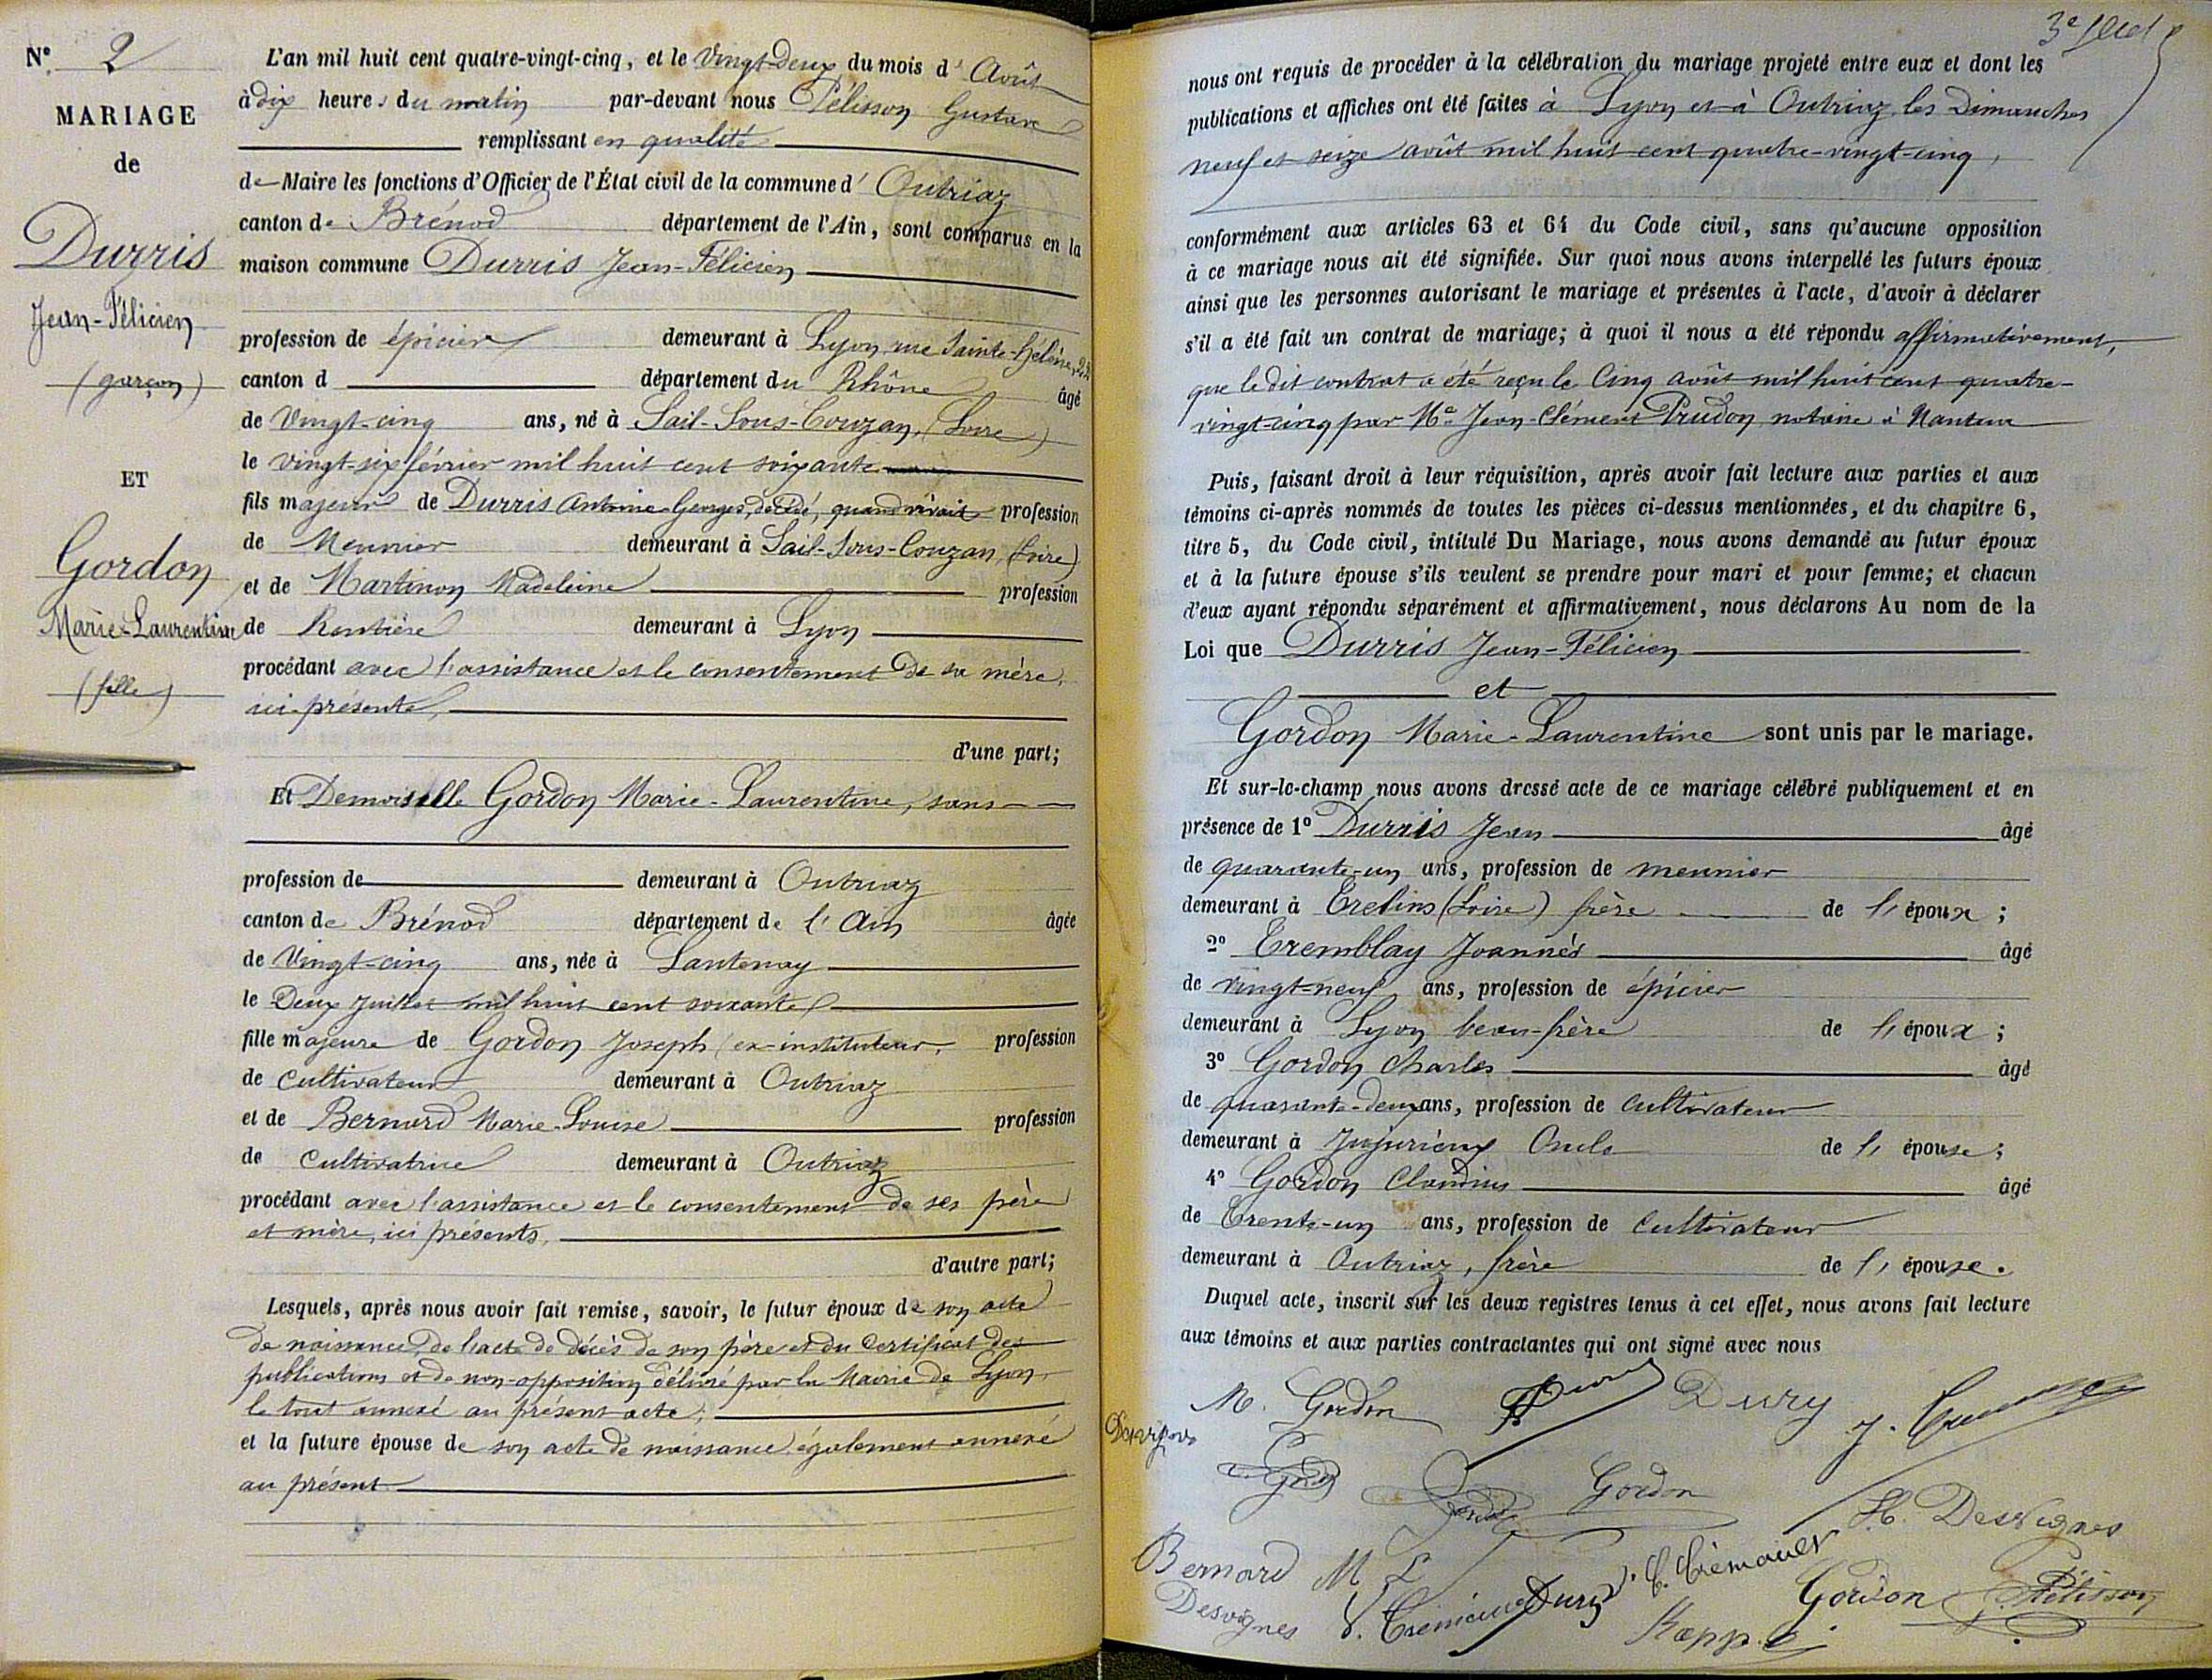 N° 2
MARIAGE
de
Durris
Jean-Félicien
(garçon)
ET
Gordon
Marie-Laurentine
(fille)
L'an mil huit cent quatre-vingt-cinq, et le Vingt-Deux du mois d' Août
à dix heures du matin par-devant nous Pélisson Gustave
remplissant en qualité
de Maire les fonctions d'Officier de l'État civil de la commune d' Outriaz
canton de Brénod département de l'Ain, sont comparus en la
maison commune Durris Jean-Félicien
profession de épicier demeurant à Lyon, rue Sainte-Hélène,
canton d département du Rhône âgé
de Vingt-cinq ans, né à Sail-Sous-Couzan, (Loire)
le vingt-six février mil huit cent soixante
fils majeur de Durris Antoine-Georges, décédé, quand vivait profession
de Meunier demeurant à Sail-Sous-Couzan, (Loire)
et de Martinon Madeleine profession
de Rentière demeurant à Lyon
procédant avec l'assistance et le consentement de sa mère,
ici-présente,
d'une part;
Et Demoiselle Gordon Marie-Laurentine, sans
profession de demeurant à Outriaz
canton de Brénod département de l'Ain âgée
de Vingt-cinq ans, née à Lantenay
le Deux Juillet mil huit cent soixante
fille majeure de Gordon Joseph (ex-instituteur, profession
de Cultivateur demeurant à Outriaz
et de Bernard Marie-Louise profession
de Cultivatrice demeurant à Outriaz
procédant avec l'assistance et le consentement de ses père
et mère, ici présents,
d'autre part;
Lesquels, après nous avoir fait remise, savoir, le futur époux de son acte
de naissance, de l'acte de décès de son père et du Certificat des
publications et de non-opposition délivré par la Mairie de Lyon,
le tout annexé au présent acte;
et la future épouse de son acte de naissance également annexé
au présent
nous ont requis de procéder à la célébration du mariage projeté entre eux et dont les
publications et affiches ont été faites à Lyon et à Outriaz, les Dimanches
neuf et seize août mil huit cent quatre-vingt-cinq,
conformément aux articles 63 et 64 du Code civil, sans qu'aucune opposition
à ce mariage nous ait été signifiée. Sur quoi nous avons interpellé les futurs époux
ainsi que les personnes autorisant le mariage et présentes à l'acte, d'avoir à déclarer
s'il a été fait un contrat de mariage; à quoi il nous a été répondu affirmativement,
que le dit contrat a été reçu le Cinq août mil huit cent quatre-
vingt-cinq par Me Jean-Clément Prudon, notaire à Nantua
Puis, faisant droit à leur réquisition, après avoir fait lecture aux parties et aux
témoins ci-après nommés de toutes les pièces ci-dessus mentionnées, et du chapitre 6,
titre 5, du Code civil, intitulé Du Mariage, nous avons demandé au futur époux
et à la future épouse s'ils veulent se prendre pour mari et pour femme; et chacun
d'eux ayant répondu séparément et affirmativement, nous déclarons Au nom de la
Loi que Durris Jean-Félicien
et
Gordon Marie-Laurentine sont unis par le mariage.
Et sur-le-champ nous avons dressé acte de ce mariage célébré publiquement et en
présence de 1° Durris Jean âgé
de quarante-un ans, profession de meunier
demeurant à Trelins (Loire) frère de l'époux;
2° Tremblay Joannès âgé
de vingt-neuf ans, profession de épicier
demeurant à Lyon beau-frère de l'époux;
3° Gordon Charles âgé
de quarante-deux ans, profession de Cultivateur
demeurant à Jujurieux Oncle de l'épouse;
4° Gordon Claudius âgé
de Trente-un ans, profession de Cultivateur
demeurant à Outriaz, frère de l'épouse.
Duquel acte, inscrit sur les deux registres tenus à cet effet, nous avons fait lecture
aux témoins et aux parties contractantes qui ont signé avec nous
M. Gordon Dury
Gordon
Desvignes
Bernard M L
Desvignes
Gordon Pélisson